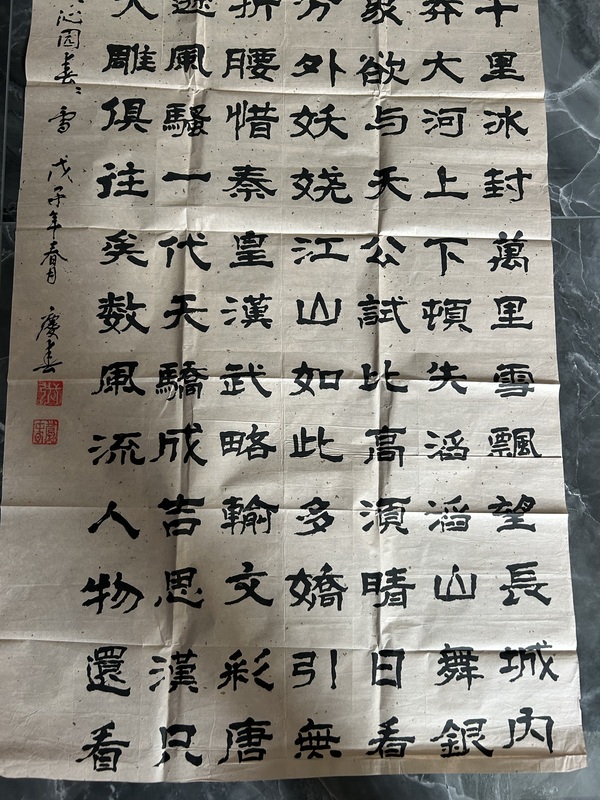 里冰封萬里雪飄望長城内
莽大河上下頓失滔滔山舞銀
象欲与天公試比高須晴日看
分外妖娆江山如此多嬌引無
折腰惜秦皇漢武略輸文彩唐
遜風騷一代天驕成吉思漢只
大雕俱往矣数風流人物還看
沁园春：雪 戊子年春月 慶春